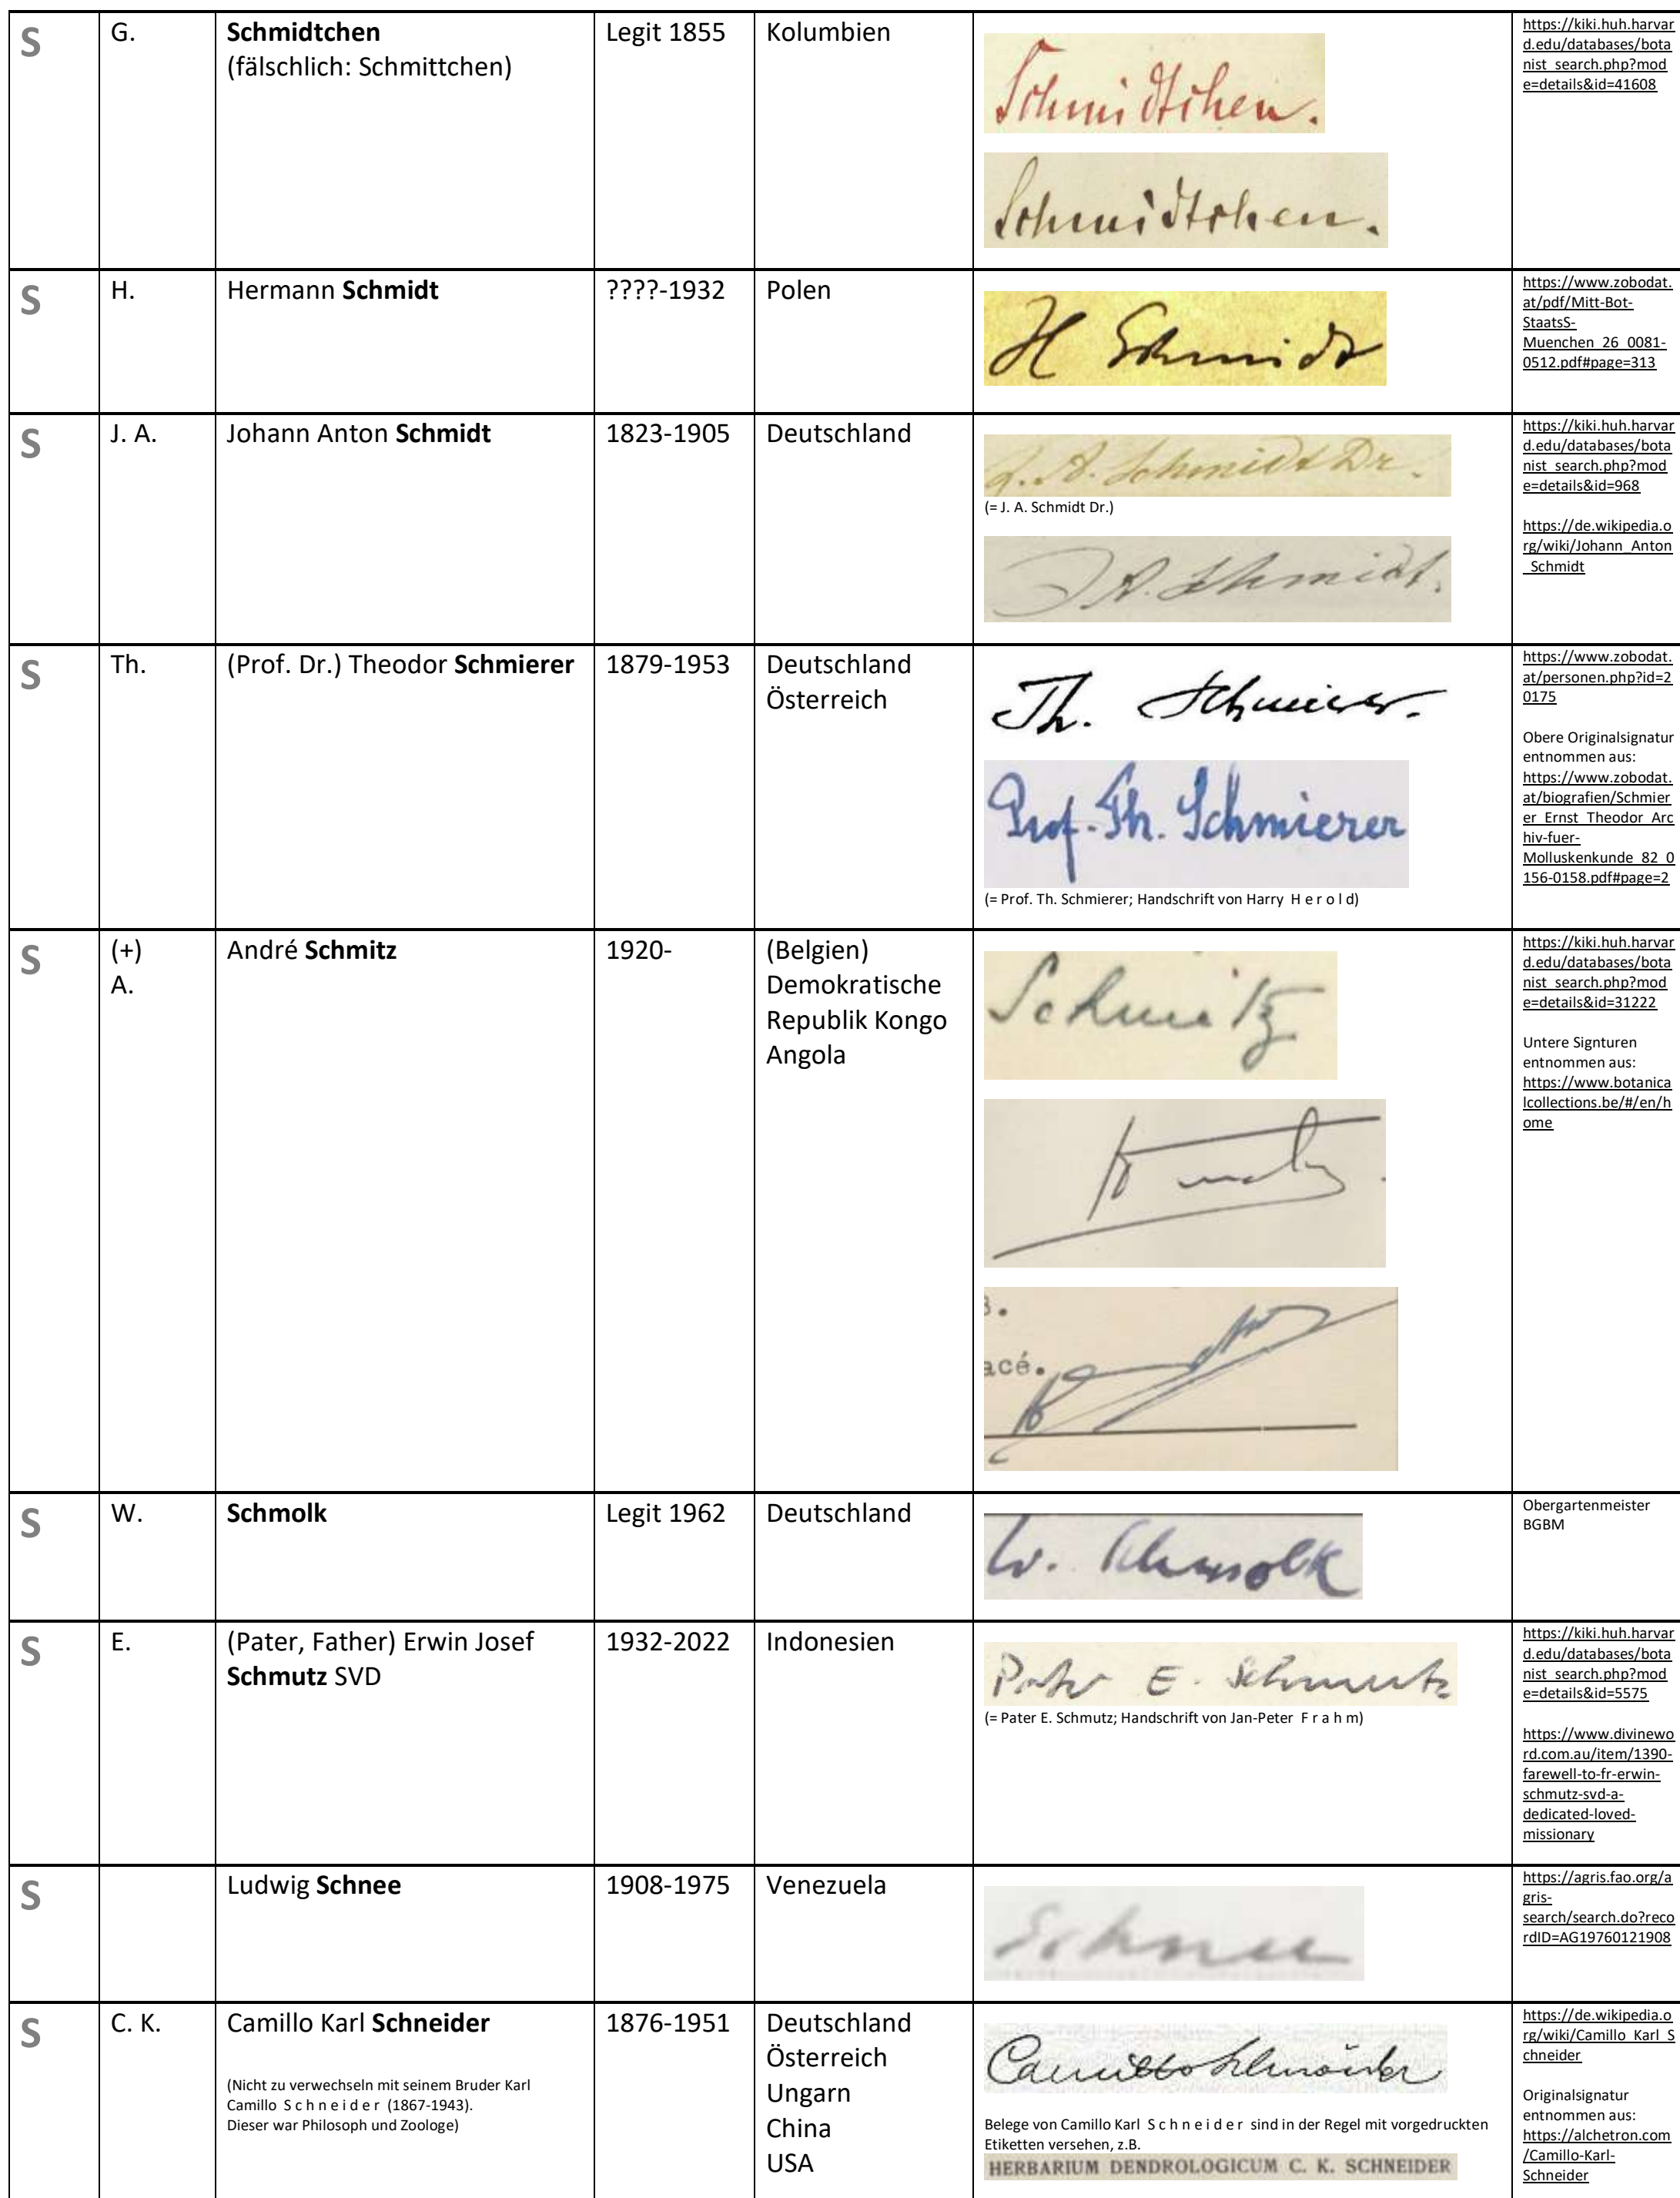 S
G.
Schmidtchen
(fälschlich: Schmittchen)
Legit 1855
Kolumbien
Schmidtchen.
Schmidtchen.
https://kiki.huh.harvar
d.edu/databases/bota
nist_search.php?mod
e=details&id=41608
S
H.
Hermann Schmidt
????-1932
Polen
H Schmidt
https://www.zobodat.
at/pdf/Mitt-Bot-
StaatsS-
Muenchen_26_0081-
0512.pdf#page=313
S
J. A.
Johann Anton Schmidt
1823-1905
Deutschland
J. A. Schmidt Dr.
(= J. A. Schmidt Dr.)
J A. Schmidt.
https://kiki.huh.harvar
d.edu/databases/bota
nist_search.php?mod
e=details&id=968
https://de.wikipedia.o
rg/wiki/Johann_Anton
_Schmidt
S
Th.
(Prof. Dr.) Theodor Schmierer
1879-1953
Deutschland
Österreich
Th. Schmierer.
Prof. Th. Schmierer
(= Prof. Th. Schmierer; Handschrift von Harry H e r o l d)
https://www.zobodat.
at/personen.php?id=2
0175
Obere Originalsignatur
entnommen aus:
https://www.zobodat.
at/biografien/Schmier
er_Ernst_Theodor_Arc
hiv-fuer-
Molluskenkunde_82_0
156-0158.pdf#page=2
S
(+)
A.
André Schmitz
1920-
(Belgien)
Demokratische
Republik Kongo
Angola
Schmitz
acé.
https://kiki.huh.harvar
d.edu/databases/bota
nist_search.php?mod
e=details&id=31222
Untere Signturen
entnommen aus:
https://www.botanica
lcollections.be/#/en/h
ome
S
W.
Schmolk
Legit 1962
Deutschland
W. Schmolk
Obergartenmeister
BGBM
S
E.
(Pater, Father) Erwin Josef
Schmutz SVD
1932-2022
Indonesien
Pater E. Schmutz
(= Pater E. Schmutz; Handschrift von Jan-Peter F r a h m)
https://kiki.huh.harvar
d.edu/databases/bota
nist_search.php?mod
e=details&id=5575
https://www.divinewo
rd.com.au/item/1390-
farewell-to-fr-erwin-
schmutz-svd-a-
dedicated-loved-
missionary
S
Ludwig Schnee
1908-1975
Venezuela
Schnee
https://agris.fao.org/a
gris-
search/search.do?reco
rdID=AG19760121908
S
C. K.
Camillo Karl Schneider
(Nicht zu verwechseln mit seinem Bruder Karl
Camillo S c h n e i d e r (1867-1943).
Dieser war Philosoph und Zoologe)
1876-1951
Deutschland
Österreich
Ungarn
China
USA
Camillo Schneider
Belege von Camillo Karl S c h n e i d e r sind in der Regel mit vorgedruckten
Etiketten versehen, z.B.
HERBARIUM DENDROLOGICUM C. K. SCHNEIDER
https://de.wikipedia.o
rg/wiki/Camillo_Karl_S
chneider
Originalsignatur
entnommen aus:
https://alchetron.com
/Camillo-Karl-
Schneider